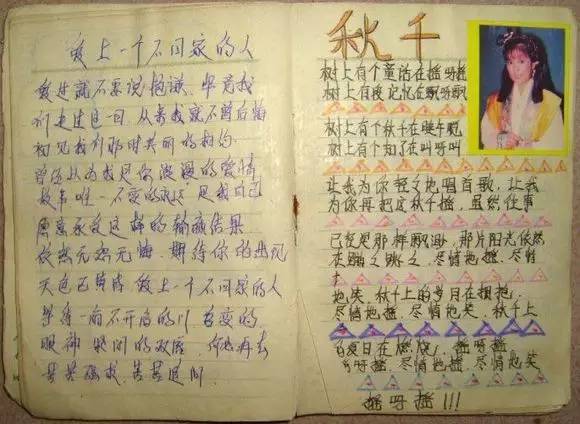 爱上一个不回家的人
爱过就不要说抱歉 毕竟我
们走过这一回 从来我就不曾后悔
初见我们那时美丽的相约
曾经以为我是你浪漫的爱情
故事唯一不变的永远 是我自己
愿意承受这样的输赢结果
依然无怨无悔 期待你的出现
天色已黄昏 爱上一个不回家的人
等待一扇不开启的门 善变的
眼神 紧闭的双唇 何必再去
苦苦强求 苦苦追问
秋千
树上有个童话在摇呀摇
树上有段记忆在飘呀飘
树上有个秋千在睡午觉
树上有个知了在叫呀叫
让我为你轻轻地唱首歌，让我
为你再把这秋千摇，虽然往事
已经是那样飘渺，那片阳光依然
在跳之跳之，尽情地摇，尽情
地笑，秋千上的岁月在拥抱
尽情地摇，尽情地笑，秋千上
的夏日在燃烧，摇呀摇
摇呀摇，尽情地摇，尽情地笑
摇呀摇!!!